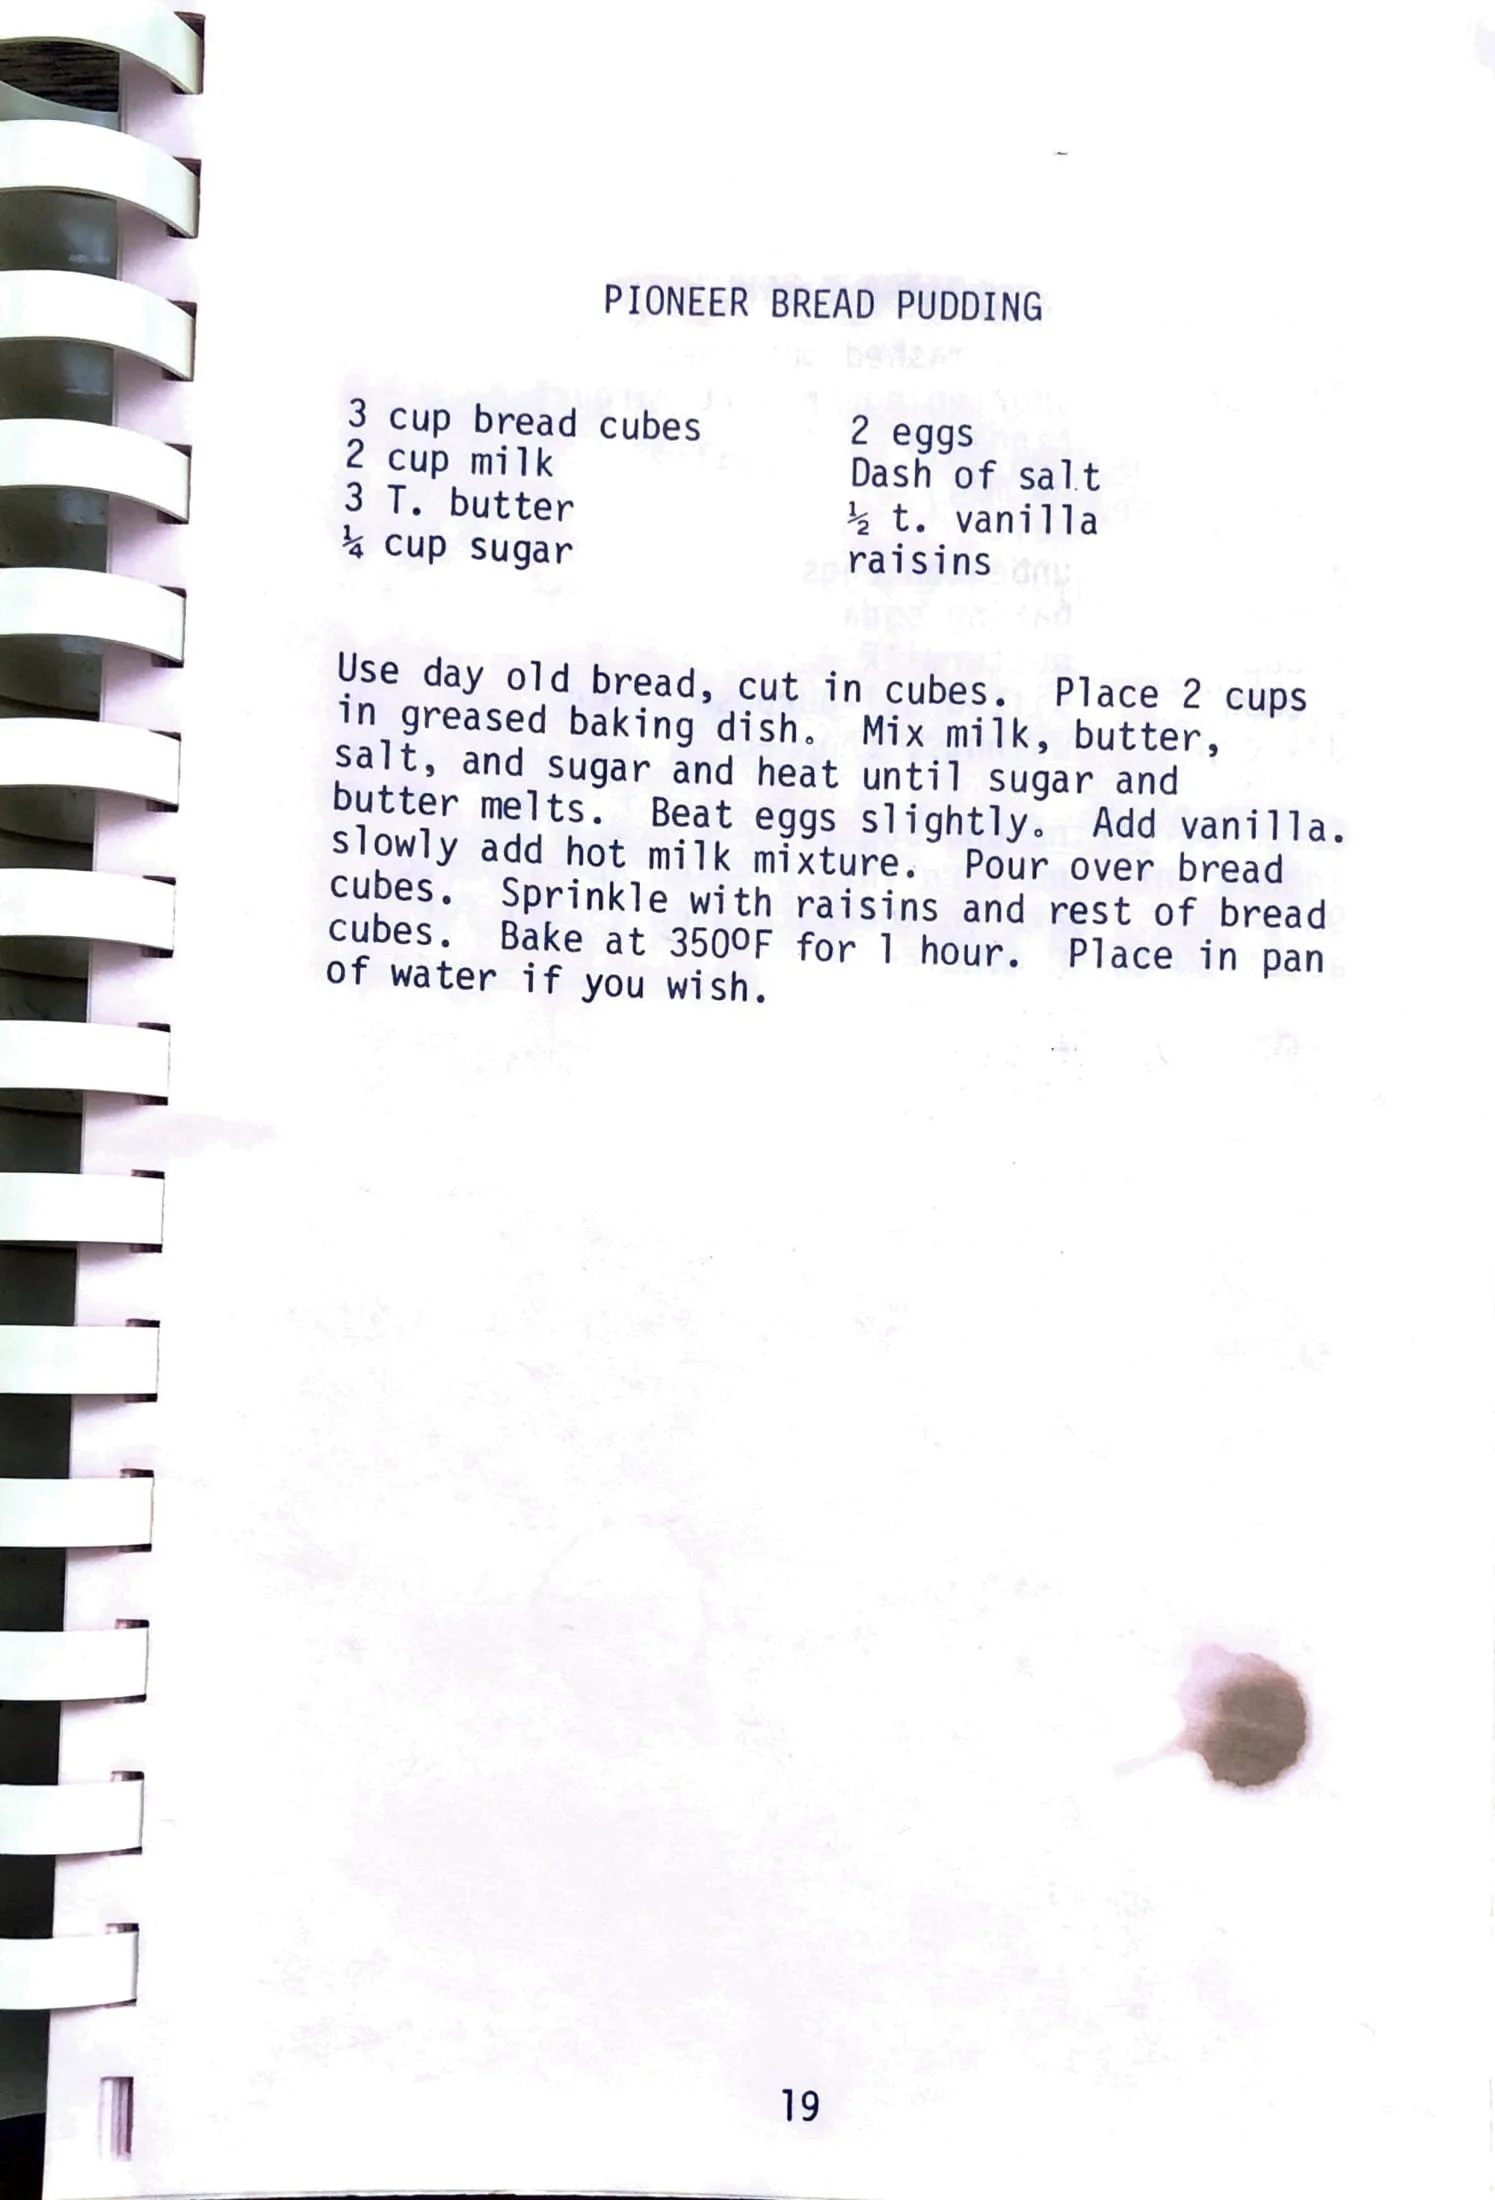 PIONEER BREAD PUDDING
3 cup bread cubes
2 cup milk
3 T. butter
¼ cup sugar
2 eggs
Dash of salt
½ t. vanilla
raisins
Use day old bread, cut in cubes. Place 2 cups
in greased baking dish. Mix milk, butter,
salt, and sugar and heat until sugar and
butter melts. Beat eggs slightly. Add vanilla.
slowly add hot milk mixture. Pour over bread
cubes. Sprinkle with raisins and rest of bread
cubes. Bake at 350ºF for 1 hour. Place in pan
of water if you wish.
19